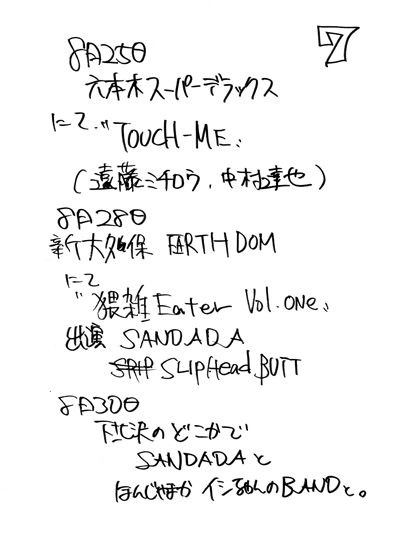 7
8月25日
六本木スーパーデラックス
にて〝TOUCH-ME〟
(遠藤ミチロウ、中村達也)
8月28日
新大久保 EARTHDOM
にて
〝猥雑Eater Vol.one〟
出演 SANDADA
SLIPHead BUTT
8月30日
下北沢のどこかで
SANDADAと
ほんじゃまか イシちゃんのBANDと。